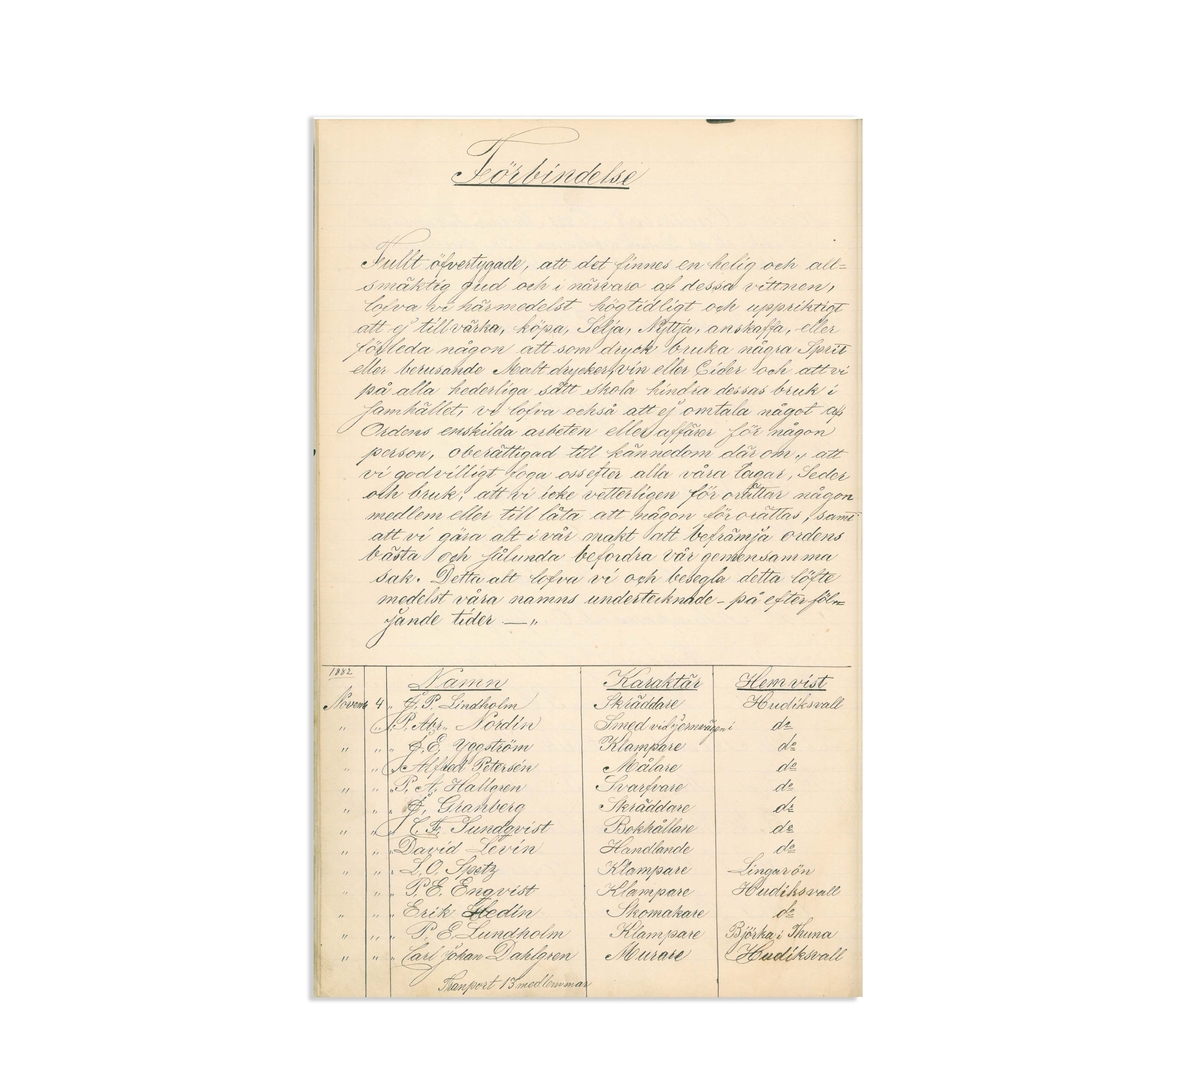 Förbindelse
Fullt öfvertygade, att det finnes en helig och all=
smäktig gud och i närvaro af dessa vittnen,
lofva vi härmedelst högtidligt och uppriktigt
att ej tillvärka, köpa, Selja, Nyttja, anskaffa, eller
förleda någon att som dryck bruka några Sprit
eller berusande Malt drycker, vin eller Cider och att vi
på alla hederliga sätt skola hindra dessas bruk i
samhället, vi lofva också att ej omtala något af
Ordens enskilda arbeten eller affärer för någon
person, oberättigad till kännedom där om, att
vi godvilligt foga oss efter alla våra Lagar, Seder
och bruk, att vi icke vetterligen för orättar någon
medlem eller till låta att någon förorättas, samt
att vi göra alt i vår makt att befrämja ordens
bästa och sålunda befordra vår gemensamma
sak. Detta alt lofva vi och besegla detta löfte
medelst våra namns undertecknade - på efterföl=
jande tider — „
1882 Namn Karaktär Hemvist
Novemb 4 „ G. P. Lindholm Skräddare Hudiksvall
„ „ „ P. Abr. Nordin Smed vid Jernvägen i do
„ „ „ J. E. Yggström Klampare do
„ „ „ Alfred Petersén Målare do
„ „ „ P. A. Hallgren Svarfvare do
„ „ „ J. Granberg Skräddare do
„ „ „ C. F. Sundqvist Bokhållare do
„ „ „ David Levin Handlande do
„ „ „ L. O. Spetz Klampare Lingarön
„ „ „ P. E. Enqvist Klampare Hudiksvall
„ „ „ Erik Hedin Skomakare do
„ „ „ P. E. Lundholm Klampare Björka i Thuna
„ „ „ Carl Johan Dahlgren Murare Hudiksvall
Tranport 13 medlemmar